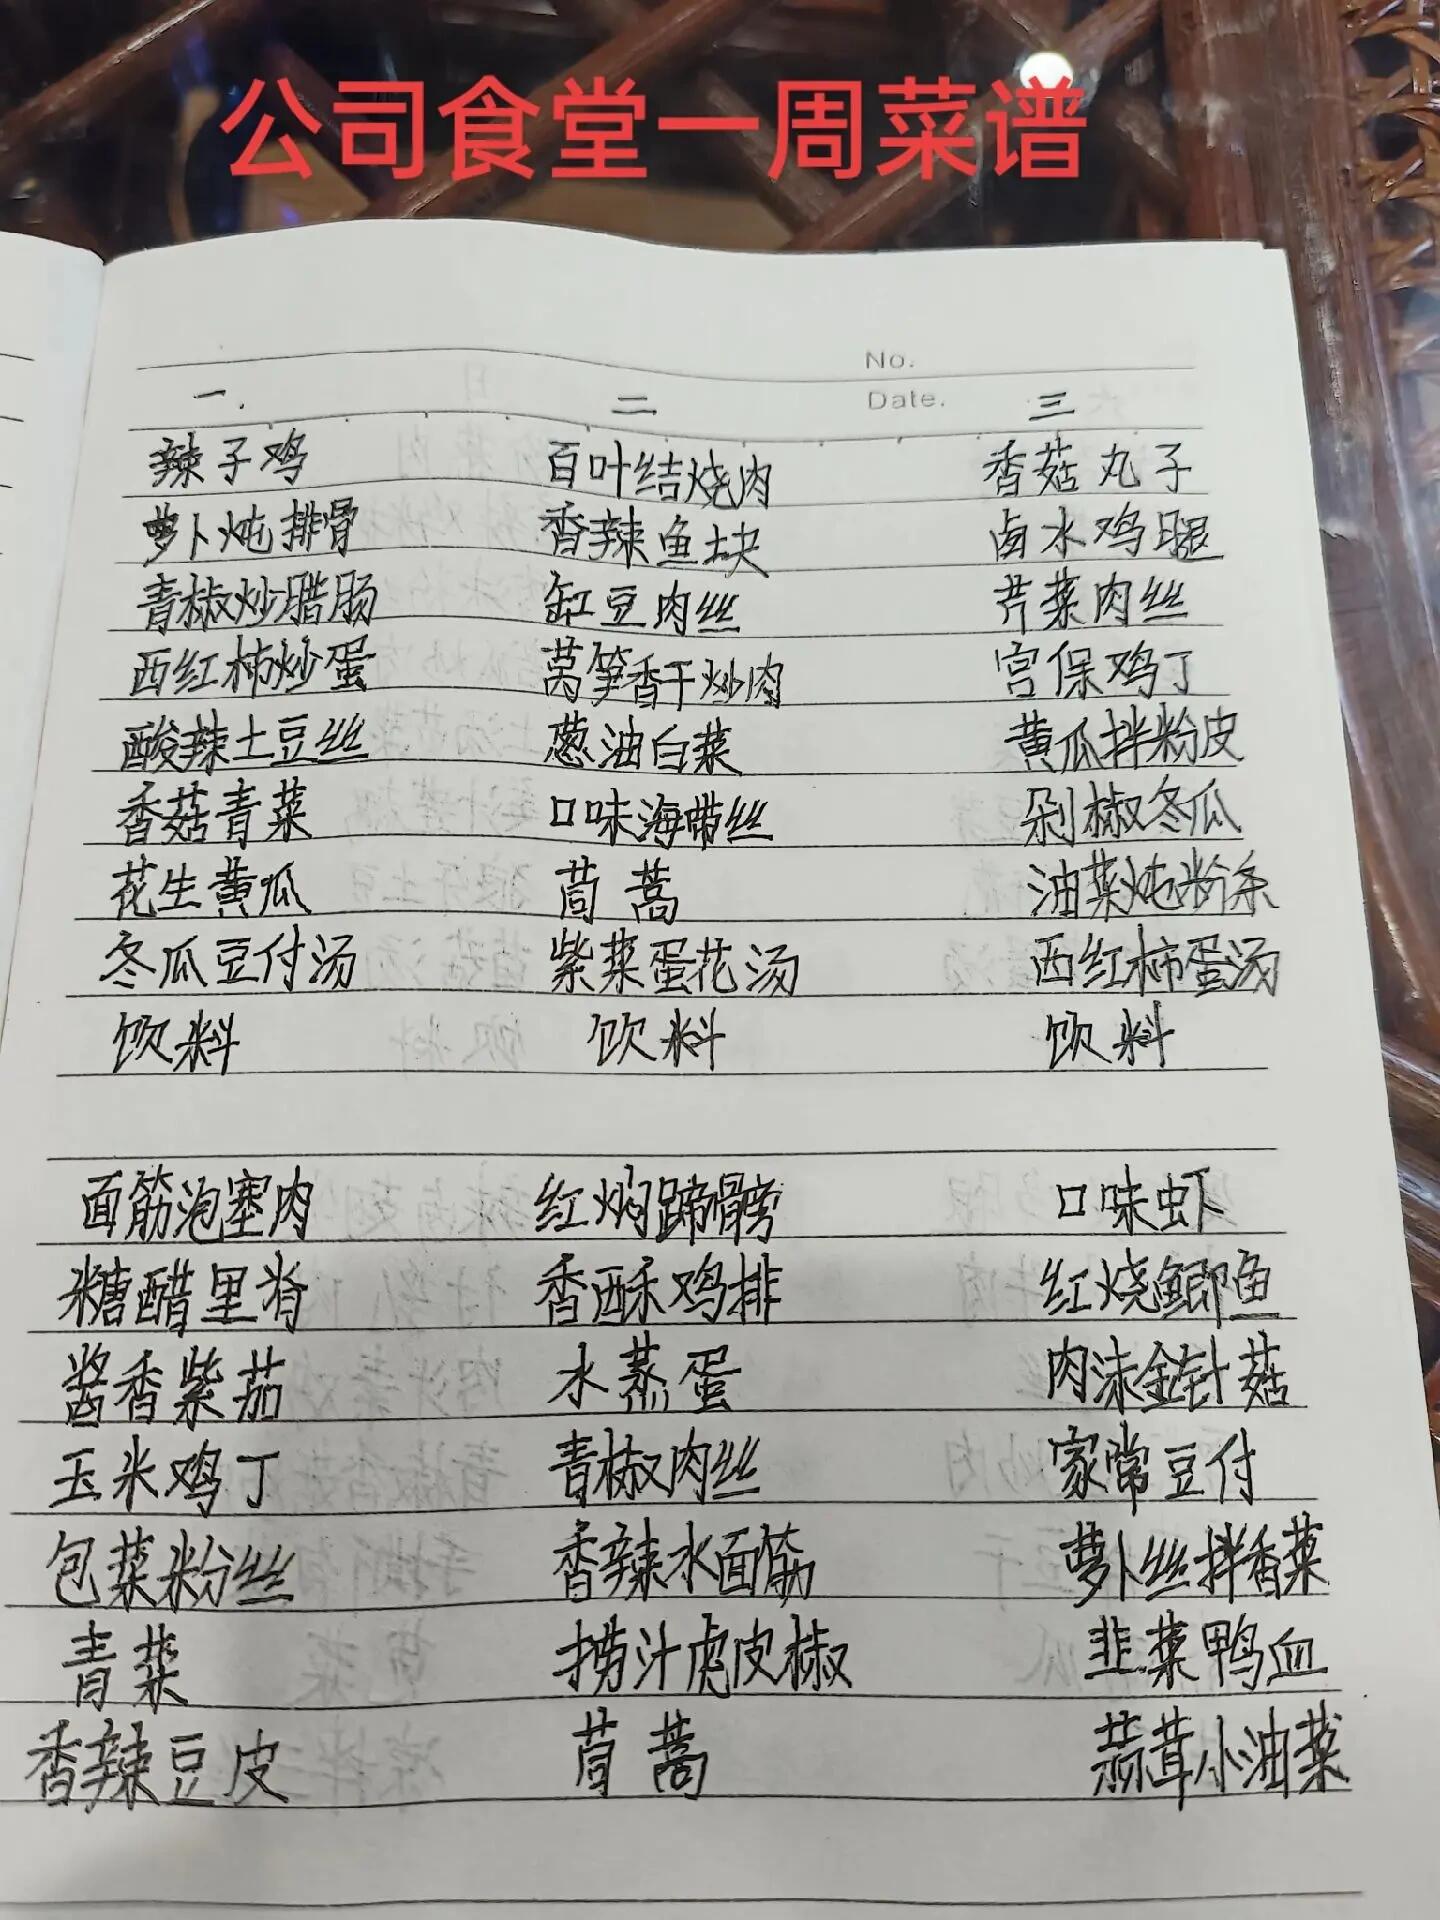 公司食堂一周菜谱
No.
Date.
一. 二 三
辣子鸡 百叶结烧肉 香菇丸子
萝卜炖排骨 香辣鱼块 卤水鸡腿
青椒炒腊肠 缸豆肉丝 芹菜肉丝
西红柿炒蛋 莴笋香干炒肉 宫保鸡丁
酸辣土豆丝 葱油白菜 黄瓜拌粉皮
香菇青菜 口味海带丝 剁椒冬瓜
花生黄瓜 茼蒿 油菜炖粉条
冬瓜豆付汤 紫菜蛋花汤 西红柿蛋汤
饮料 饮料 饮料
面筋泡塞肉 红焖蹄髈 口味虾
糖醋里脊 香酥鸡排 红烧鲫鱼
酱香紫茄 水蒸蛋 肉沫金针菇
玉米鸡丁 青椒肉丝 家常豆付
包菜粉丝 香辣水面筋 萝卜丝拌香菜
青菜 捞汁虎皮椒 韭菜鸭血
香辣豆皮 茼蒿 蒜茸小油菜